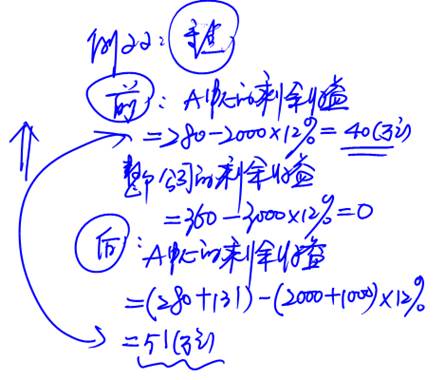 例22:
前: A中心的剩余收益
=280-2000×12%=40(万元)
整个公司的剩余收益
=360-3000×12%=0
后: A中心的剩余收益
=(280+131)-(2000+1000)×12%
=51(万元)